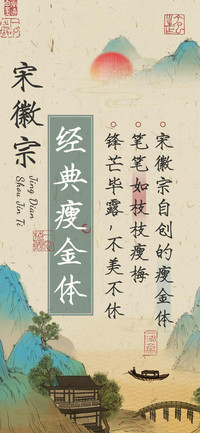 宋徽宗
Jing Dian
Shou Jin Ti
经典瘦金体
宋徽宗自创的瘦金体
笔笔如枝枝瘦梅
锋芒毕露，不美不休